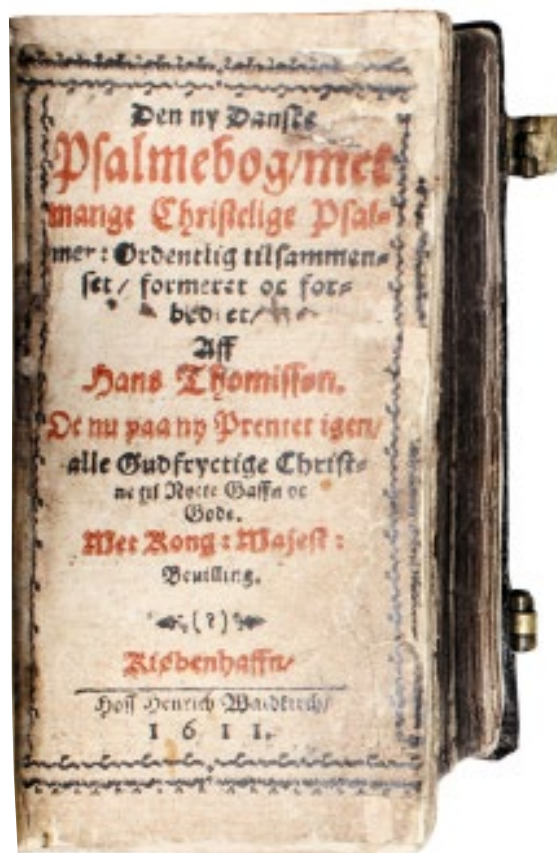 Den ny Danske
Psalmebog/met
mange Christelige Psal-
mer: Ordentlig tilsammen-
set/ formeret oc for-
bedret/
Aff
Hans Thomissøn.
Oc nu paa ny Prentet igen/
alle Gudfryctige Christ-
ne til Nytte Gaffn oc
Gode.
Met Kong: Majest:
Beuilling.
(?)
Kiøbenhaffn/
Hoss Henrich Waldkirch/
1611.